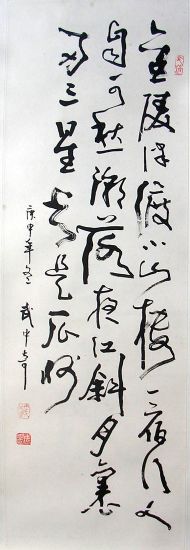 金陵津渡小山樓一宿行人
自可愁潮落夜江斜月裏
兩三星火是瓜州
庚申年冬 武中奇